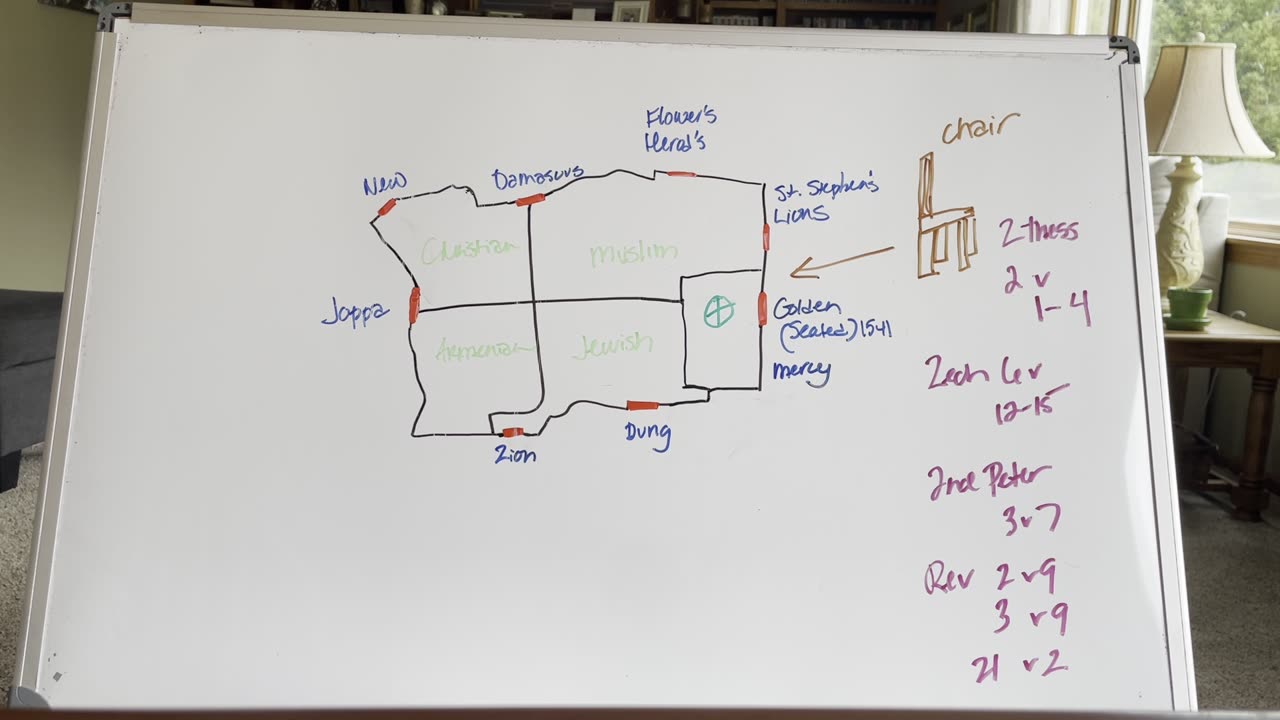 Flower's
Herod's
chair
New
Damascus
St. Stephen's
Lions
Christian
Muslim
2 thess
2 v
1-4
Joppa
Golden
(Sealed) 1541
mercy
Armenian
Jewish
Zech 6 v
12-15
Zion
Dung
2nd Peter
3 v 7
Rev 2 v 9
3 v 9
21 v 2